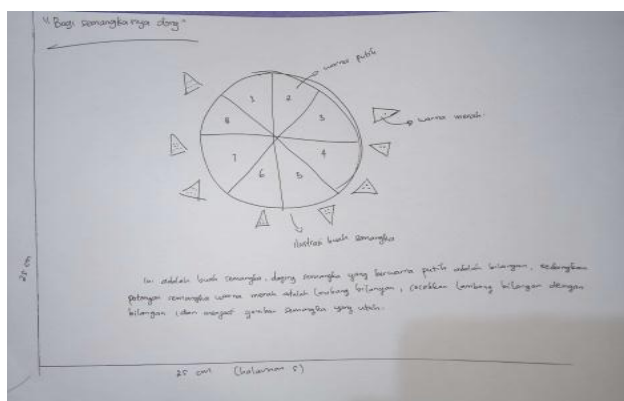 "Bagi semangkanya dong"
warna putih
1
2
3
4
5
6
7
8
warna merah
ilustrasi buah semangka
25 cm
Ini adalah buah semangka, daging semangka yang berwarna putih adalah bilangan, sedangkan
potongan semangka warna merah adalah lambang bilangan, cocokkan lambang bilangan dengan
bilangan (dan menjadi gambar semangka yang utuh.
25 cm (halaman 5)